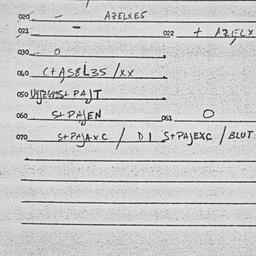 020 - AZELXES
021 - 022 + AZIELX
030 0
040 C+AS8L35/XX
050 PAJT
060 S+PAJEN 061 0
070 S+PAJAXC / DI S+PAJEXC / BLUT